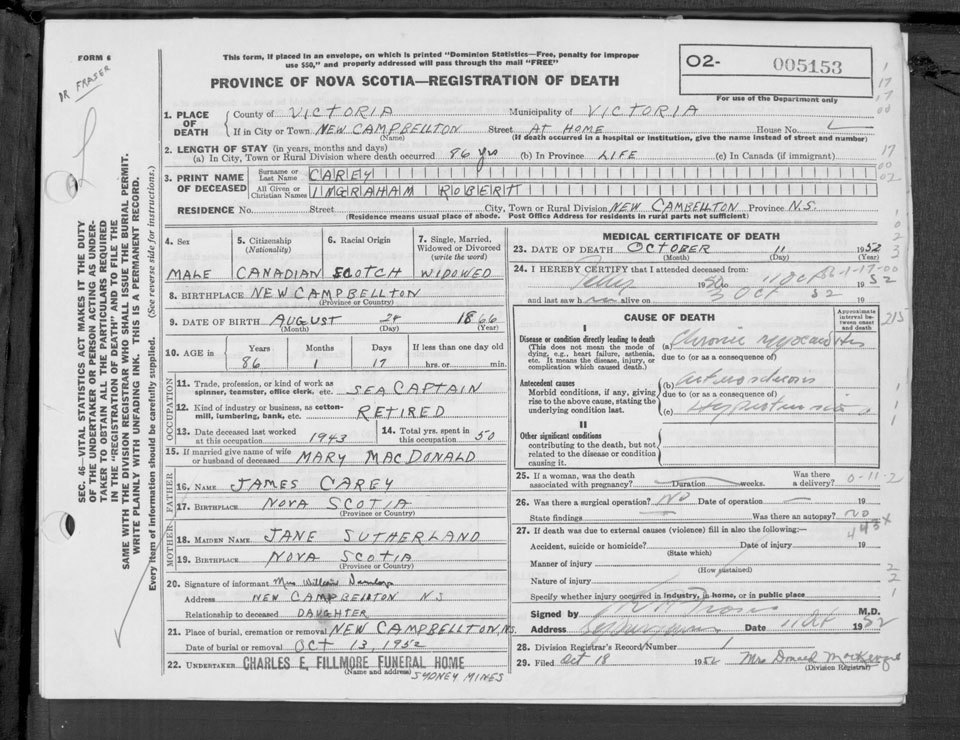 FORM 6
DR FRASER
This form, if placed in an envelope, on which is printed "Dominion Statistics—Free, penalty for improper
use $50," and properly addressed will pass through the mail "FREE"
PROVINCE OF NOVA SCOTIA—REGISTRATION OF DEATH
O2- 005153
For use of the Department only
SEC. 46—VITAL STATISTICS ACT MAKES IT THE DUTY
OF THE UNDERTAKER OR PERSON ACTING AS UNDER-
TAKER TO OBTAIN ALL THE PARTICULARS REQUIRED
IN THE "REGISTRATION OF DEATH" AND TO FILE THE
SAME WITH THE DIVISION REGISTRAR WHO SHALL ISSUE THE BURIAL PERMIT.
WRITE PLAINLY WITH UNFADING INK. THIS IS A PERMANENT RECORD.
Every item of information should be carefully supplied. (See reverse side for instructions.)
1. PLACE OF DEATH
County of VICTORIA Municipality of VICTORIA
If in City or Town NEW CAMPBELLTON Street AT HOME House No.
(Name) (If death occurred in a hospital or institution, give the name instead of street and number)
2. LENGTH OF STAY (in years, months and days)
(a) In City, Town or Rural Division where death occurred 86 yrs (b) In Province LIFE (c) In Canada (if immigrant)
3. PRINT NAME OF DECEASED
Surname or Last Name CAREY
All Given or Christian Names INGRAHAM ROBERT
RESIDENCE No. Street City, Town or Rural Division NEW CAMBELLTON Province N.S.
(Residence means usual place of abode. Post Office Address for residents in rural parts not sufficient)
4. Sex 5. Citizenship (Nationality) 6. Racial Origin 7. Single, Married, Widowed or Divorced (write the word)
MALE CANADIAN SCOTCH WIDOWED
8. BIRTHPLACE NEW CAMPBELLTON
(Province or Country)
9. DATE OF BIRTH AUGUST 24 1866
(Month) (Day) (Year)
10. AGE in Years Months Days If less than one day old
86 1 17 hrs. or min.
OCCUPATION
11. Trade, profession, or kind of work as
spinner, teamster, office clerk, etc. SEA CAPTAIN
12. Kind of industry or business, as cotton-
mill, lumbering, bank, etc. RETIRED
13. Date deceased last worked at this occupation 1943
14. Total yrs. spent in this occupation 50
15. If married give name of wife
or husband of deceased MARY MACDONALD
FATHER
16. NAME JAMES CAREY
17. BIRTHPLACE NOVA SCOTIA
(Province or Country)
MOTHER
18. MAIDEN NAME JANE SUTHERLAND
19. BIRTHPLACE NOVA SCOTIA
(Province or Country)
20. Signature of informant Mrs William
Address NEW CAMPBELLTON NS
Relationship to deceased DAUGHTER
21. Place of burial, cremation or removal NEW CAMPBELLTON, NS.
Date of burial or removal OCT 13, 1952
22. UNDERTAKER CHARLES E. FILLMORE FUNERAL HOME
(Name and address) SYDNEY MINES
MEDICAL CERTIFICATE OF DEATH
23. DATE OF DEATH OCTOBER 11 1952
(Month) (Day) (Year)
24. I HEREBY CERTIFY that I attended deceased from:
1950 to 11 Oct 1952
and last saw him alive on 3 Oct 52 19
CAUSE OF DEATH
Approximate interval between onset and death
I
Disease or condition directly leading to death
(This does not mean the mode of
dying, e.g., heart failure, asthenia,
etc. It means the disease, injury, or
complication which caused death.)
(a) Chronic
due to (or as a consequence of)
Antecedent causes
Morbid conditions, if any, giving
rise to the above cause, stating the
underlying condition last.
(b)
due to (or as a consequence of)
(c) Hypertension
II
Other significant conditions
contributing to the death, but not
related to the disease or condition
causing it.
25. If a woman, was the death
associated with pregnancy? Duration weeks. Was there a delivery?
26. Was there a surgical operation? No Date of operation —
State findings — Was there an autopsy? no
27. If death was due to external causes (violence) fill in also the following:—
Accident, suicide or homicide? Date of injury 19
(State which)
Manner of injury
(How sustained)
Nature of injury
Specify whether injury occurred in industry, in home, or in public place
Signed by M.D.
Address Date 11 Oct 1952
28. Division Registrar's Record Number 1
29. Filed Oct 18 195 Mrs Donald
(Division Registrar)